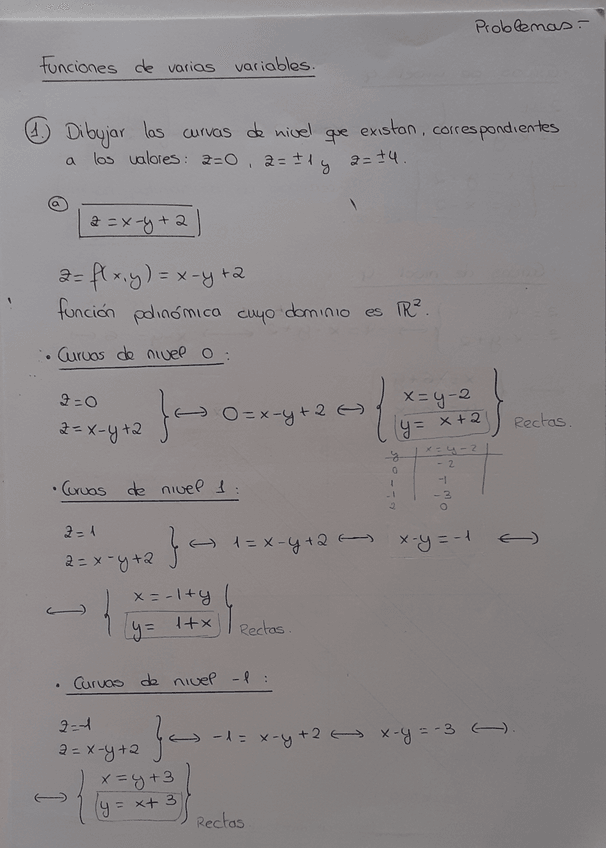 Problemas.-
Funciones de varias variables.
1. Dibujar las curvas de nivel que existan, correspondientes
a los valores: z=0, z=±1 y z=±4.
a
z=x-y+2
z=f(x,y)=x-y+2
función polinómica cuyo dominio es ℝ².
• Curvas de nivel 0:
z=0
z=x-y+2 } ⟷ 0=x-y+2 ⟷ { x=y-2
y= x+2 } Rectas.
y | x=y-2
0 | -2
1 | -1
-1 | -3
2 | 0
• Curvas de nivel 1:
z=1
z=x-y+2 } ⟷ 1=x-y+2 ⟷ x-y=-1 ⟷
⟷ { x=-1+y
y= 1+x } Rectas.
• Curvas de nivel -1:
z=-1
z=x-y+2 } ⟷ -1= x-y+2 ⟷ x-y=-3 ⟷.
⟷ { x=y+3
y= x+3 } Rectas